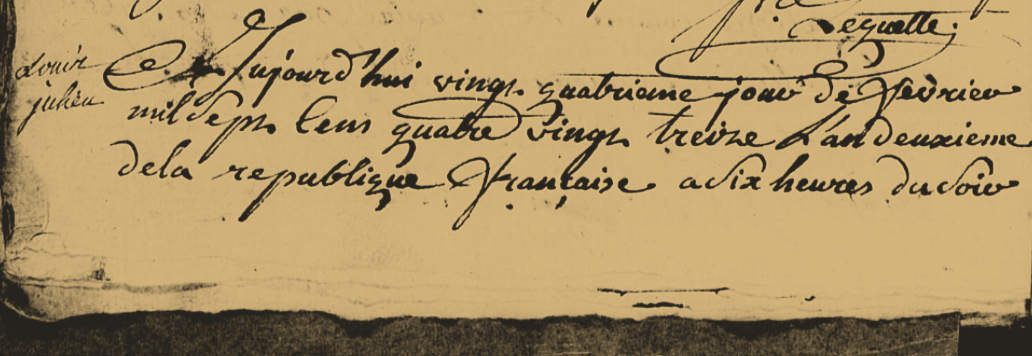 Lequette
Louis
julien
Aujourd'hui vingt quatrieme jour de fevrier
mil sept Cens quatre vingt treize L'an deuxieme
de la republique française a six heures du soir